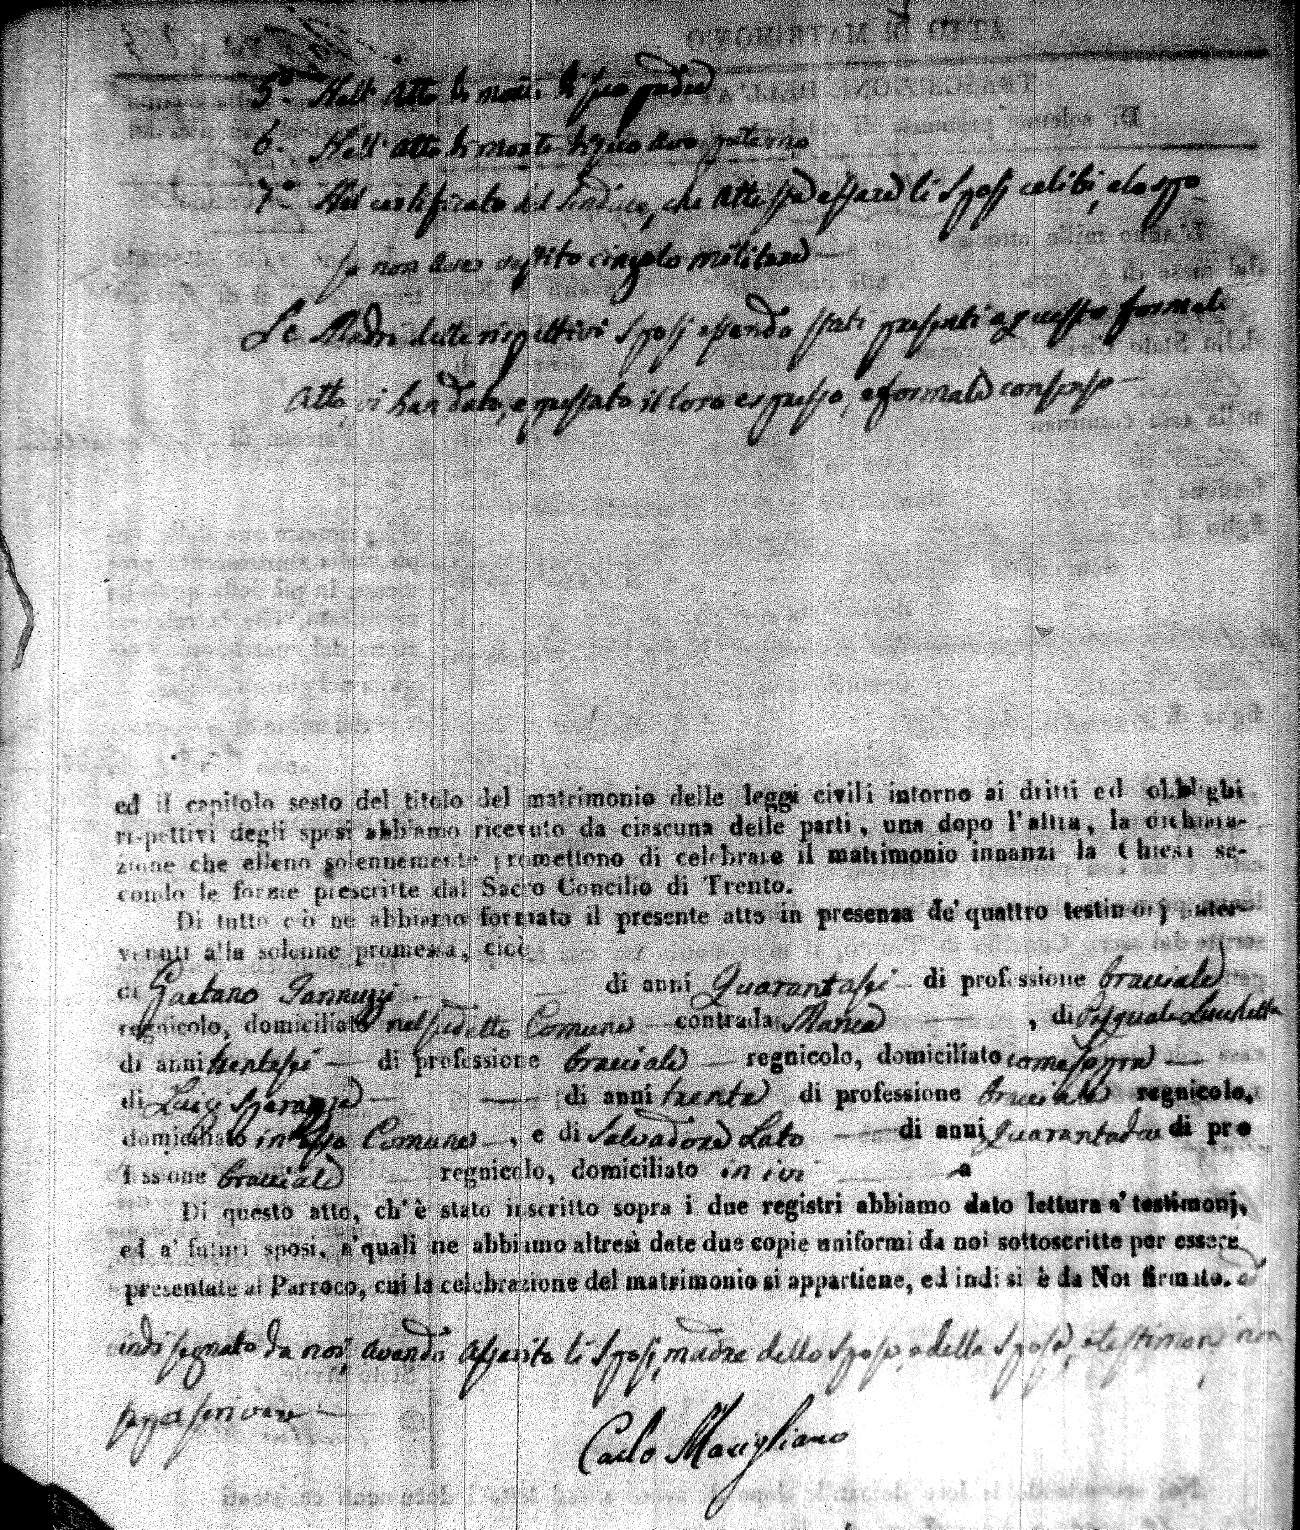 5.° Nell' Atto di morte di suo padre
6. Nell' atto di morte di suo avo paterno
7.° Nel certificato del Sindaco, che attesta essere li Sposi celibi, e lo spo-
so non aver vestito cingolo militare
Le Madri delle rispettivi Sposi essendo stati presenti a questo formale
atto, vi han dato, e prestato il loro espresso, e formale consenso
ed il capitolo sesto del titolo del matrimonio delle leggi civili intorno ai dritti ed obblighi
rispettivi degli sposi abbiamo ricevuto da ciascuna delle parti, una dopo l'altra, la dichiara-
zione che elleno solennemente promettono di celebrare il matrimonio innanzi la Chiesa se-
condo le forme prescritte dal Sacro Concilio di Trento.
Di tutto ciò ne abbiamo formato il presente atto in presenza de' quattro testimonj inter-
venuti alla solenne promessa, cioè
di Gaetano Iannuzzi di anni Quarantasei di professione bracciale
regnicolo, domiciliato nel sudetto Comune contrada Manca , di Pasquale Luchetta
di anni trentasei di professione bracciale regnicolo, domiciliato come sopra
di Luigi Speranza di anni trenta di professione bracciale regnicolo,
domiciliato in essa Comune , e di Salvadore Lato di anni quarantadue di pro
fessione bracciale regnicolo, domiciliato in ivi
Di questo atto, ch'è stato inscritto sopra i due registri abbiamo dato lettura a' testimonj,
ed a' futuri sposi, a' quali ne abbiamo altresì date due copie uniformi da noi sottoscritte per essere
presentate al Parroco, cui la celebrazione del matrimonio si appartiene, ed indi si è da Noi firmato. e
indi segnato da noi, avendo asserito li Sposi, madre dello Sposo, e della Sposa, e testimoni non
saper scrivere
Carlo Marigliano